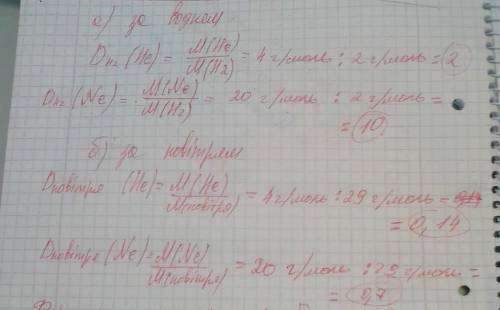 а) за воднем
D H₂ (He) = M(He)/M(H₂) = 4 г/моль : 2 г/моль = 2
D H₂ (Ne) = M(Ne)/M(H₂) = 20 г/моль : 2 г/моль =
= 10
б) за повітрям
Dповітря (He) = M(He)/M(повітря) = 4 г/моль : 29 г/моль =
= 0,14
Dповітря (Ne) = M(Ne)/M(повітря) = 20 г/моль : 29 г/моль =
= 0,7